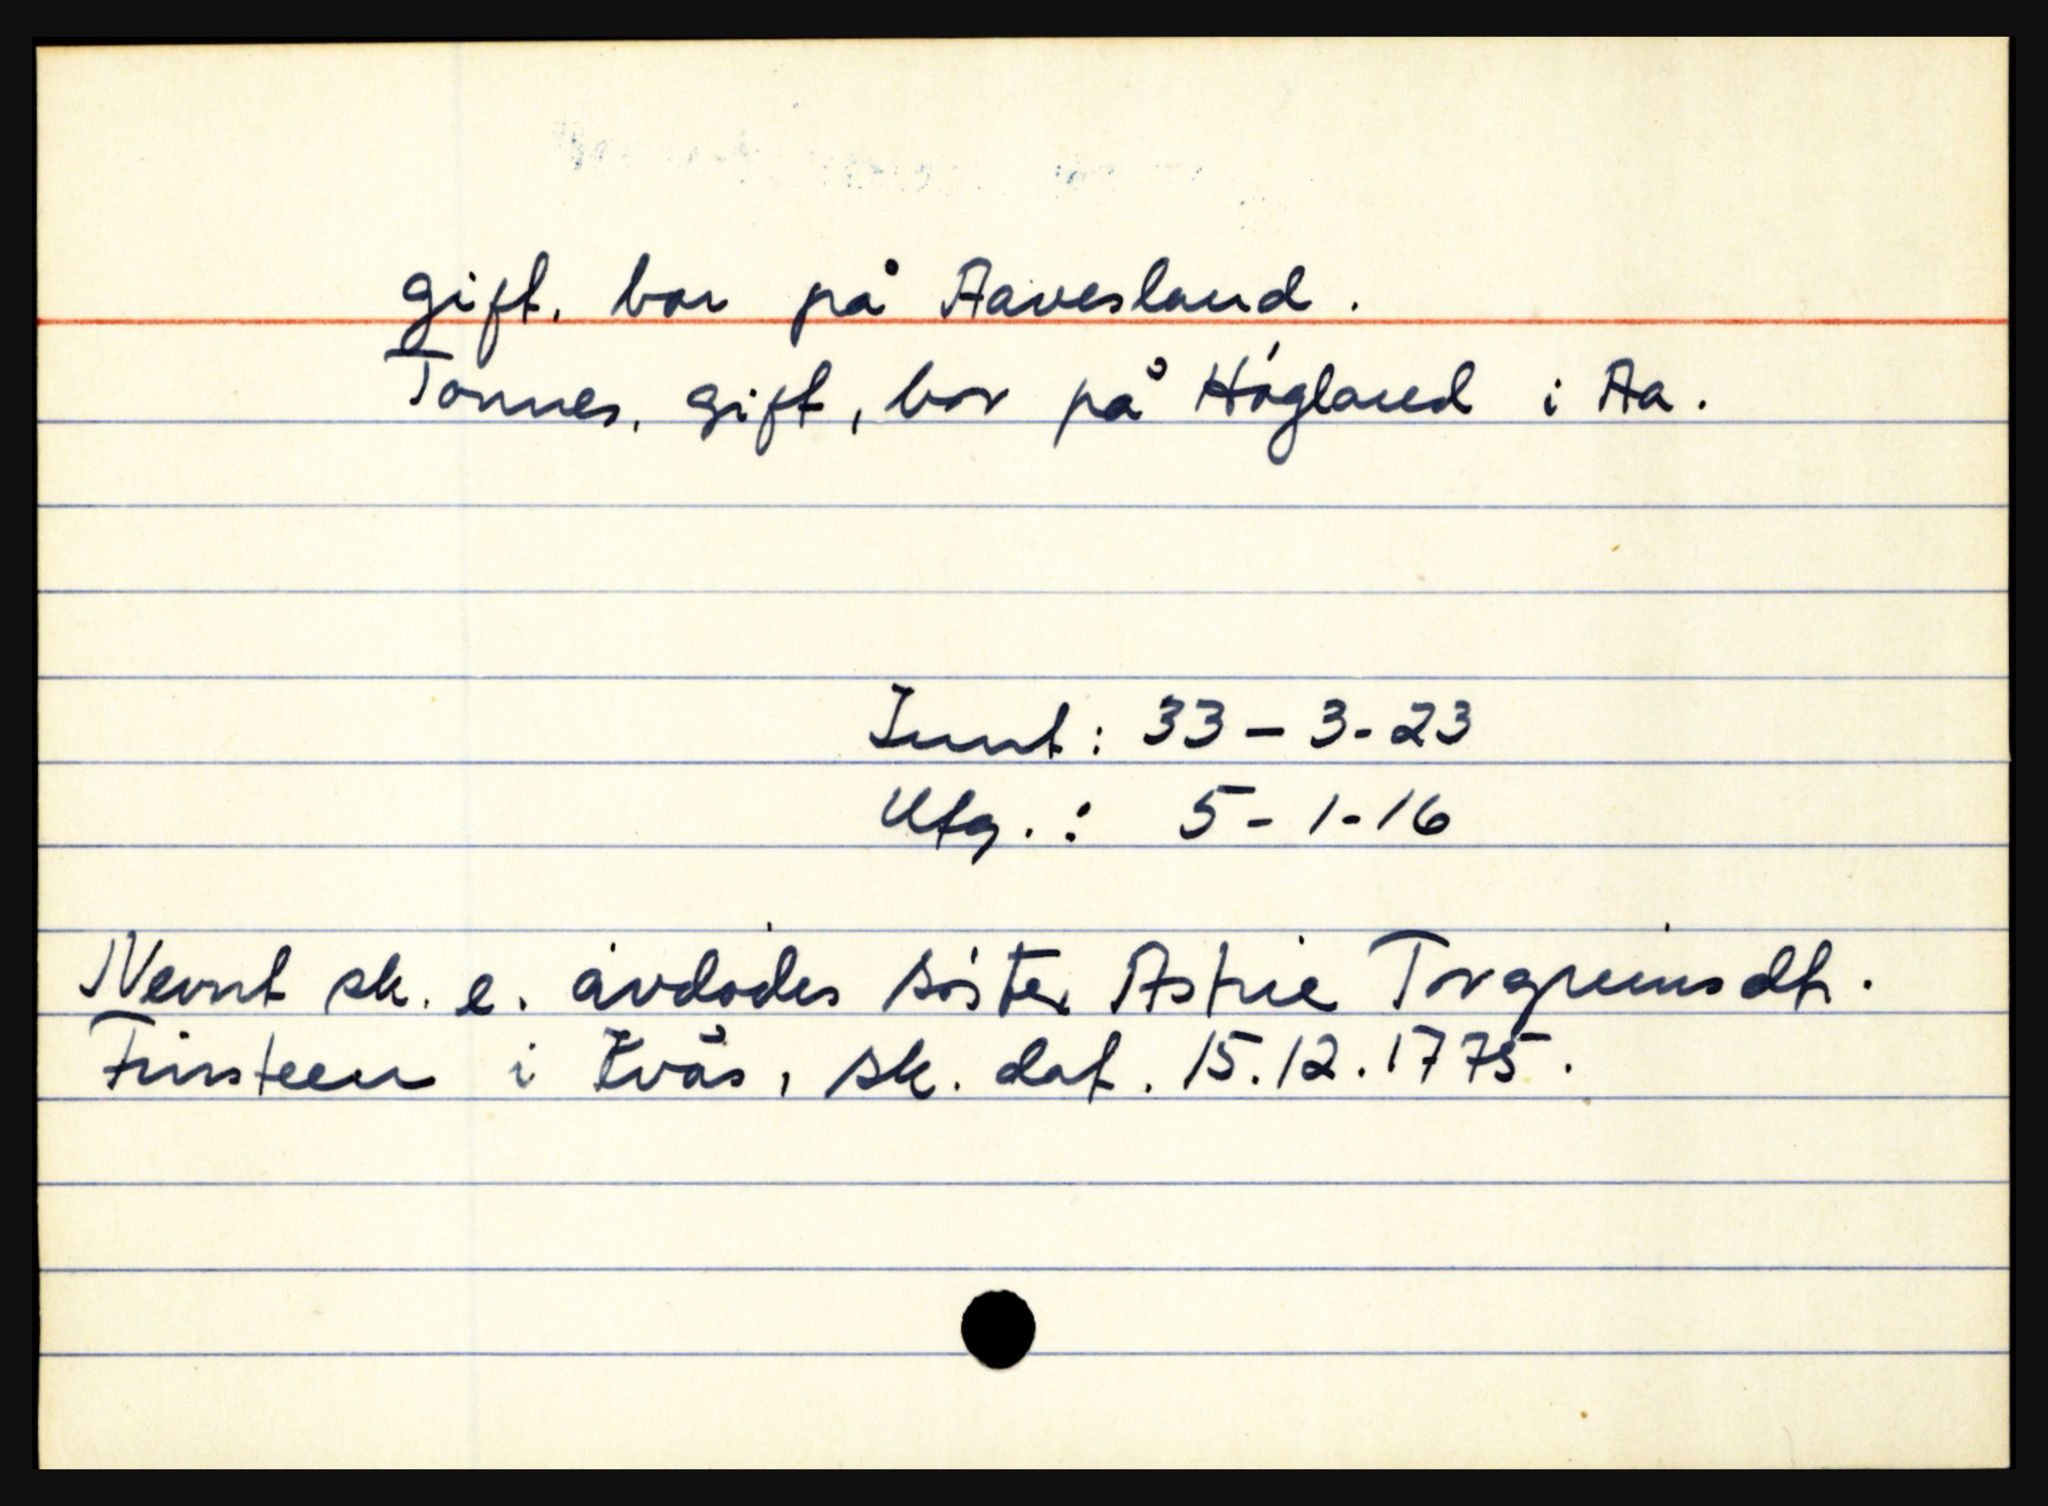 gift, bor på Aavesland.
Tønnes, gift, bor på Høgland i Aa.
Innt: 33-3-23
Utg.: 5-1-16
Nevnt sk. e. avdødes søster Astrie Torgrimsdtr.
i Kvås, sk. dat. 15.12.1775.